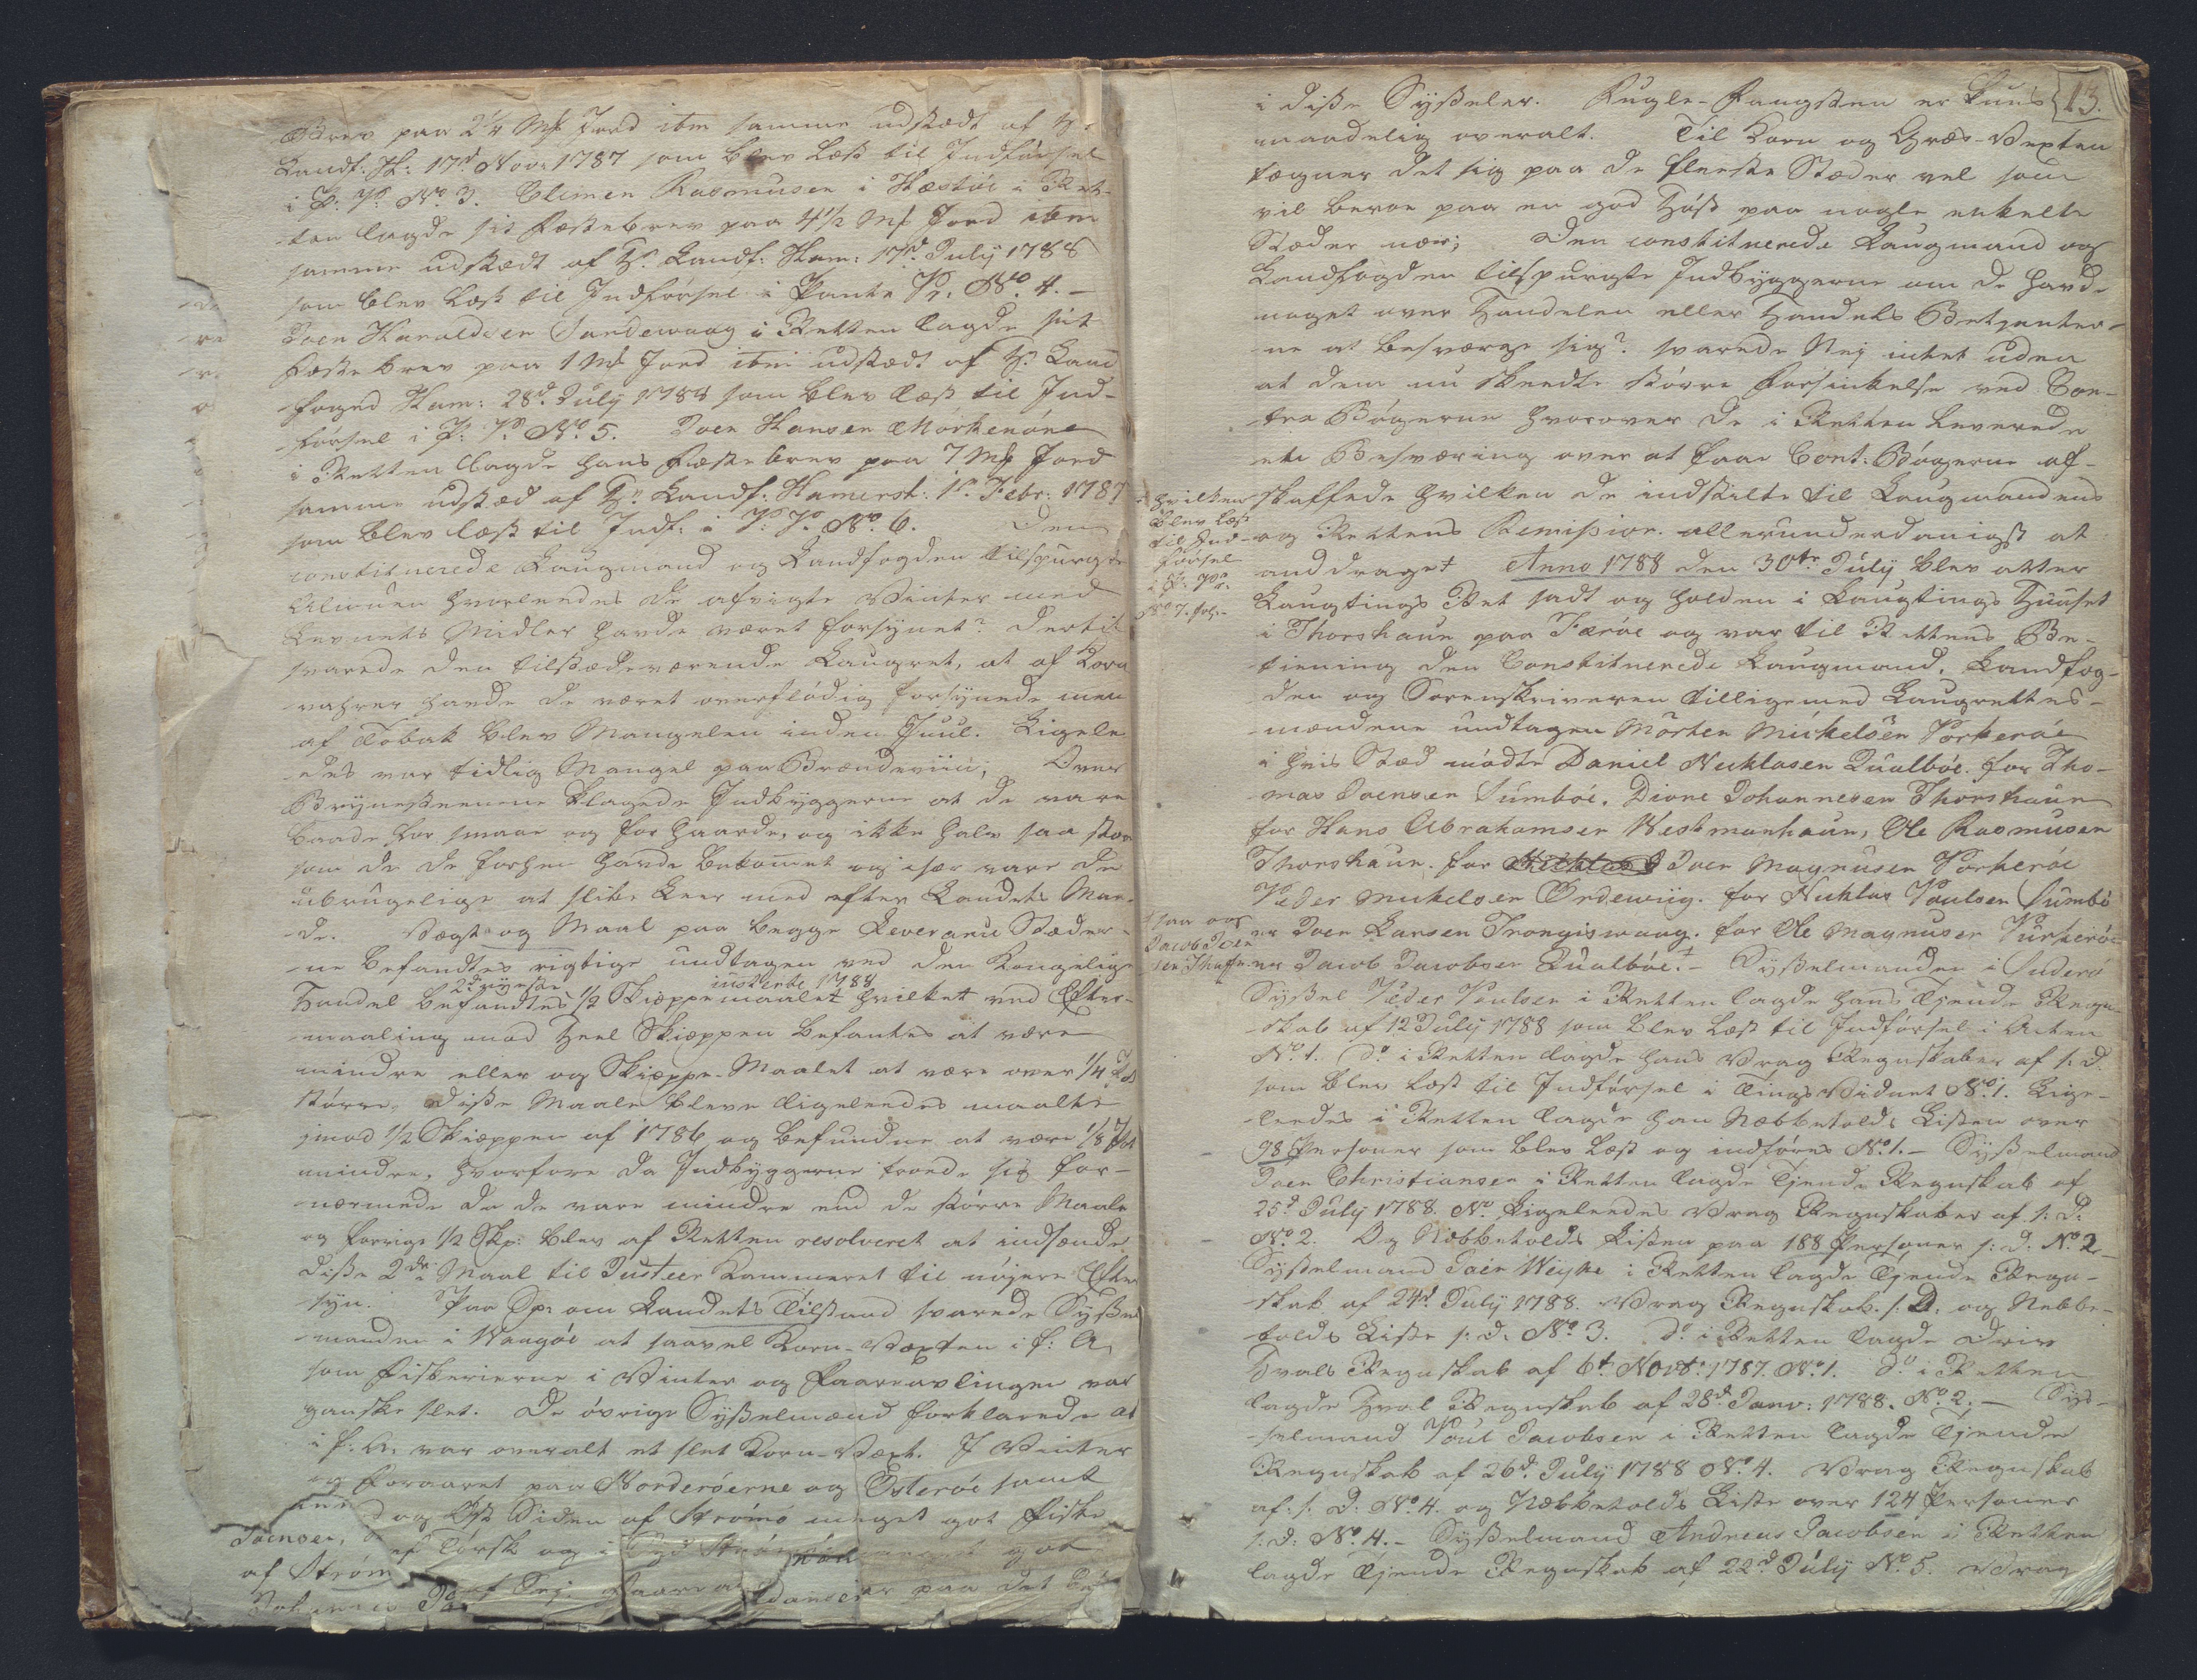 Brev paa 2 1/4 Mk Jord item samme udstædt af Hr.
Landf: H: 17d Novr 1787 som blev læst til Indførsel
i P: P: No. 3. Clemen Rasmusen i Hæstøe i Ret-
ten lagde sit Fæstebrev paa 4 1/2 Mk Jord item
samme udstædt af Hr. Landf: Ham: 17d. July 1788
som blev læst til Indførsel i Pante Pr. No. 4. -
Joen Haraldsen Sandewaag i Retten lagde sit
Fæstebrev paa 1 Mk Jord item udstædt af Hr. Land
foged Ham: 28d. July 1788 som blev læst til Ind-
førsel i P: P: No. 5. Joen Hansen Morkenøre
i Retten lagde hans Fæstebrev paa 7 Mk Jord
samme udstæd af Hr. Landf: Hamersh: 1d. Febr: 1787
som blev læst til Indf: i P: P: No. 6. Den
constituerede Laugmand og Landfogden tilspurgte
Almuen hvorleedes de afvigte Vinter med
Levnets Midler havde været forsynet? Dertil
svarede den tilstædeværende Laugret, at af Korn
vahrer havde de været overflødig forsynede men
af Tobak blev Mangelen inden Juul. Ligele
des var tidlig Mangel paa Brændeviin; Over
Brynesteenene klagede Indbyggerne at de vare
baade for smaae og for haarde, og ikke halv saa stor
som de de forhen havde bekommet og især vare de
ubrugelige at slibe Leer med efter Landets Maa-
de. Vægt og Maal paa begge Leverance Stæder-
ne befandtes rigtige undtagen ved den Kongelige
2de nye inskente 1788
Handel befandtes 1/2 Skieppemaalet hvilket ved Efter-
maaling mod Heel Skieppen befantes at være
mindre eller og Skieppe-Maalet at være over 1/4
større, diße Maaler bleve ligeleedes maalte
imod 1/2 Skieppen af 1786 og befundne at være 1/8 Pot
mindre, hvorfore da Indbyggerne troede sig for-
nærmede da de vare mindre end de større Maale
og forrige 1/2 Skp: blev af Retten resolveret at indsænde
diße 2de Maal til Justeer Kammeret til nøjere Efter
syn. Paa Sp: om Landets Tilstand svarede Syßel
manden i Waagøe at saavel Korn-Væxten i f: A.
som fiskerierne i Vinter og Faareavlingen var
ganske slet. De øvrige Syßelmænd forklarede at
i f: A: var overalt et slet Korn-Væxt. I Vinter
og Foraaret paa Norderøerne og Østerøe samt
og Øst Siden af Strømø meget got fiske
Joensen, af Torsk og i Syd Strøm got
af Strøm af Sej. Faareav paa det
13.
i diße Syßeler. Fugle-Fangsten er kuns
maadelig overalt. Til Korn og Græs-Vexten
tegner det sig paa de fleeste Stæder vel som
vil beroe paa en god Høst paa nogle enkelte
Stæder nær; Den constituerede Laugmand og
Landfogden tilspurgte Indbyggerne om de havde
noget over Handelen eller Handels Betjenter-
ne at besværge sig? svarede Nej intet uden
at dem nu skeedte større Forsinkelse ved Con-
tra Bøgerne hvorover de i Retten leverede
een Besværing over at faae Cont: Bøgerne af-
skaffede hvilken de indstilte til Laugmandens
og Rettens Remission allerunderdanigst at
anddraget Anno 1788 den 30te July blev atter
Laugtings Ret sadt og holden i Laugtings Huuset
i Thorshaun paa Færøe og var til Rettens Be-
tiening den Constituerede Laugmand, Landfog-
den og Sorenskriveren tilligemed Laugrettes-
mændene undtagen Morten Mickelsen Porkerøe
i hvis Stæd mødte Daniel Nicklasen Qualbøe. for Tho-
mas Joensen Sumbøe. Dione Johannesen Thorshaun
for Hans Abrahamsen Westmanhaun, Ole Rasmusen
Thorshaun. for Joen Magnusen Porkerøe
Peder Mickelsen Ordewiig. for Nicklas Poulsen Sumbø
er Joen Larsen Trongiswaag. for Ole Magnusen Porkerøe
er Jacob Jacobsen Qualbøe.† - Syßelmanden i Suderø
Syßel Peder Poulsen i Retten lagde hans Tjende Regn-
skab af 12 July 1788 som blev læst til Indførsel i Acten
No. 1. Do i Retten lagde hans Vrag Regnskaber af s: D.
som blev læst til Indførsel i Tings Vidnet No. 1. Lige-
leedes i Retten lagde han Næbbetolds Listen over
98 Personer som blev læst og indføres No. 1. - Syßelmand
Joen Christiansen i Retten lagde Tjende Regnskab af
25d July 1788. No. Ligeleedes Vrag Regnskaber af s: D:
No. 2. Og Næbbetolds Listen paa 188 Personer s: D: No. 2 -
Syßelmand Weyhe i Retten lagde Tjende Regn-
skab af 24d. July 1788. Vrag Regnskab. s: D. og Nebbe-
tolds Liste s: D: No. 3. Do i Retten lagde Driv
Hvals Regnskab af 6t. Novbr. 1787. No. 1. Do i Retten
lagde Hval Regnskab af 28d Janv: 1788. No. 2. - Sys-
selmand Poul Jacobsen i Retten lagde Tjende
Regnskab af 26d. July 1788 No. 4. Vrag Regnskab
af: s. D: No. 4. og Næbbetolds Liste over 124 Personer
s: D: No. 4. - Syßelmand Andreas Jacobsen i Retten
lagde Tjende Regnskab af 22d July No. 5. Vrag
† hvilken
blev læst
til Ind-
førsel
i P: P:
No 7. fol. -
† saa og
Jacob Joen
sen